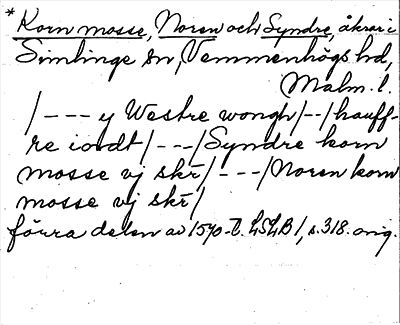 * Korn mosse, Noren och Syndre, åkrar i
Simlinge sn, Vemmenhögs hd,
Malm. l.
/---y Westre wongh/--/hauff-
re iordt/---/Syndre korn
mosse vj skr/---/Noren korn
mosse vj skr/
förra delen av 1570-t. LSLB 1, s. 318. orig.